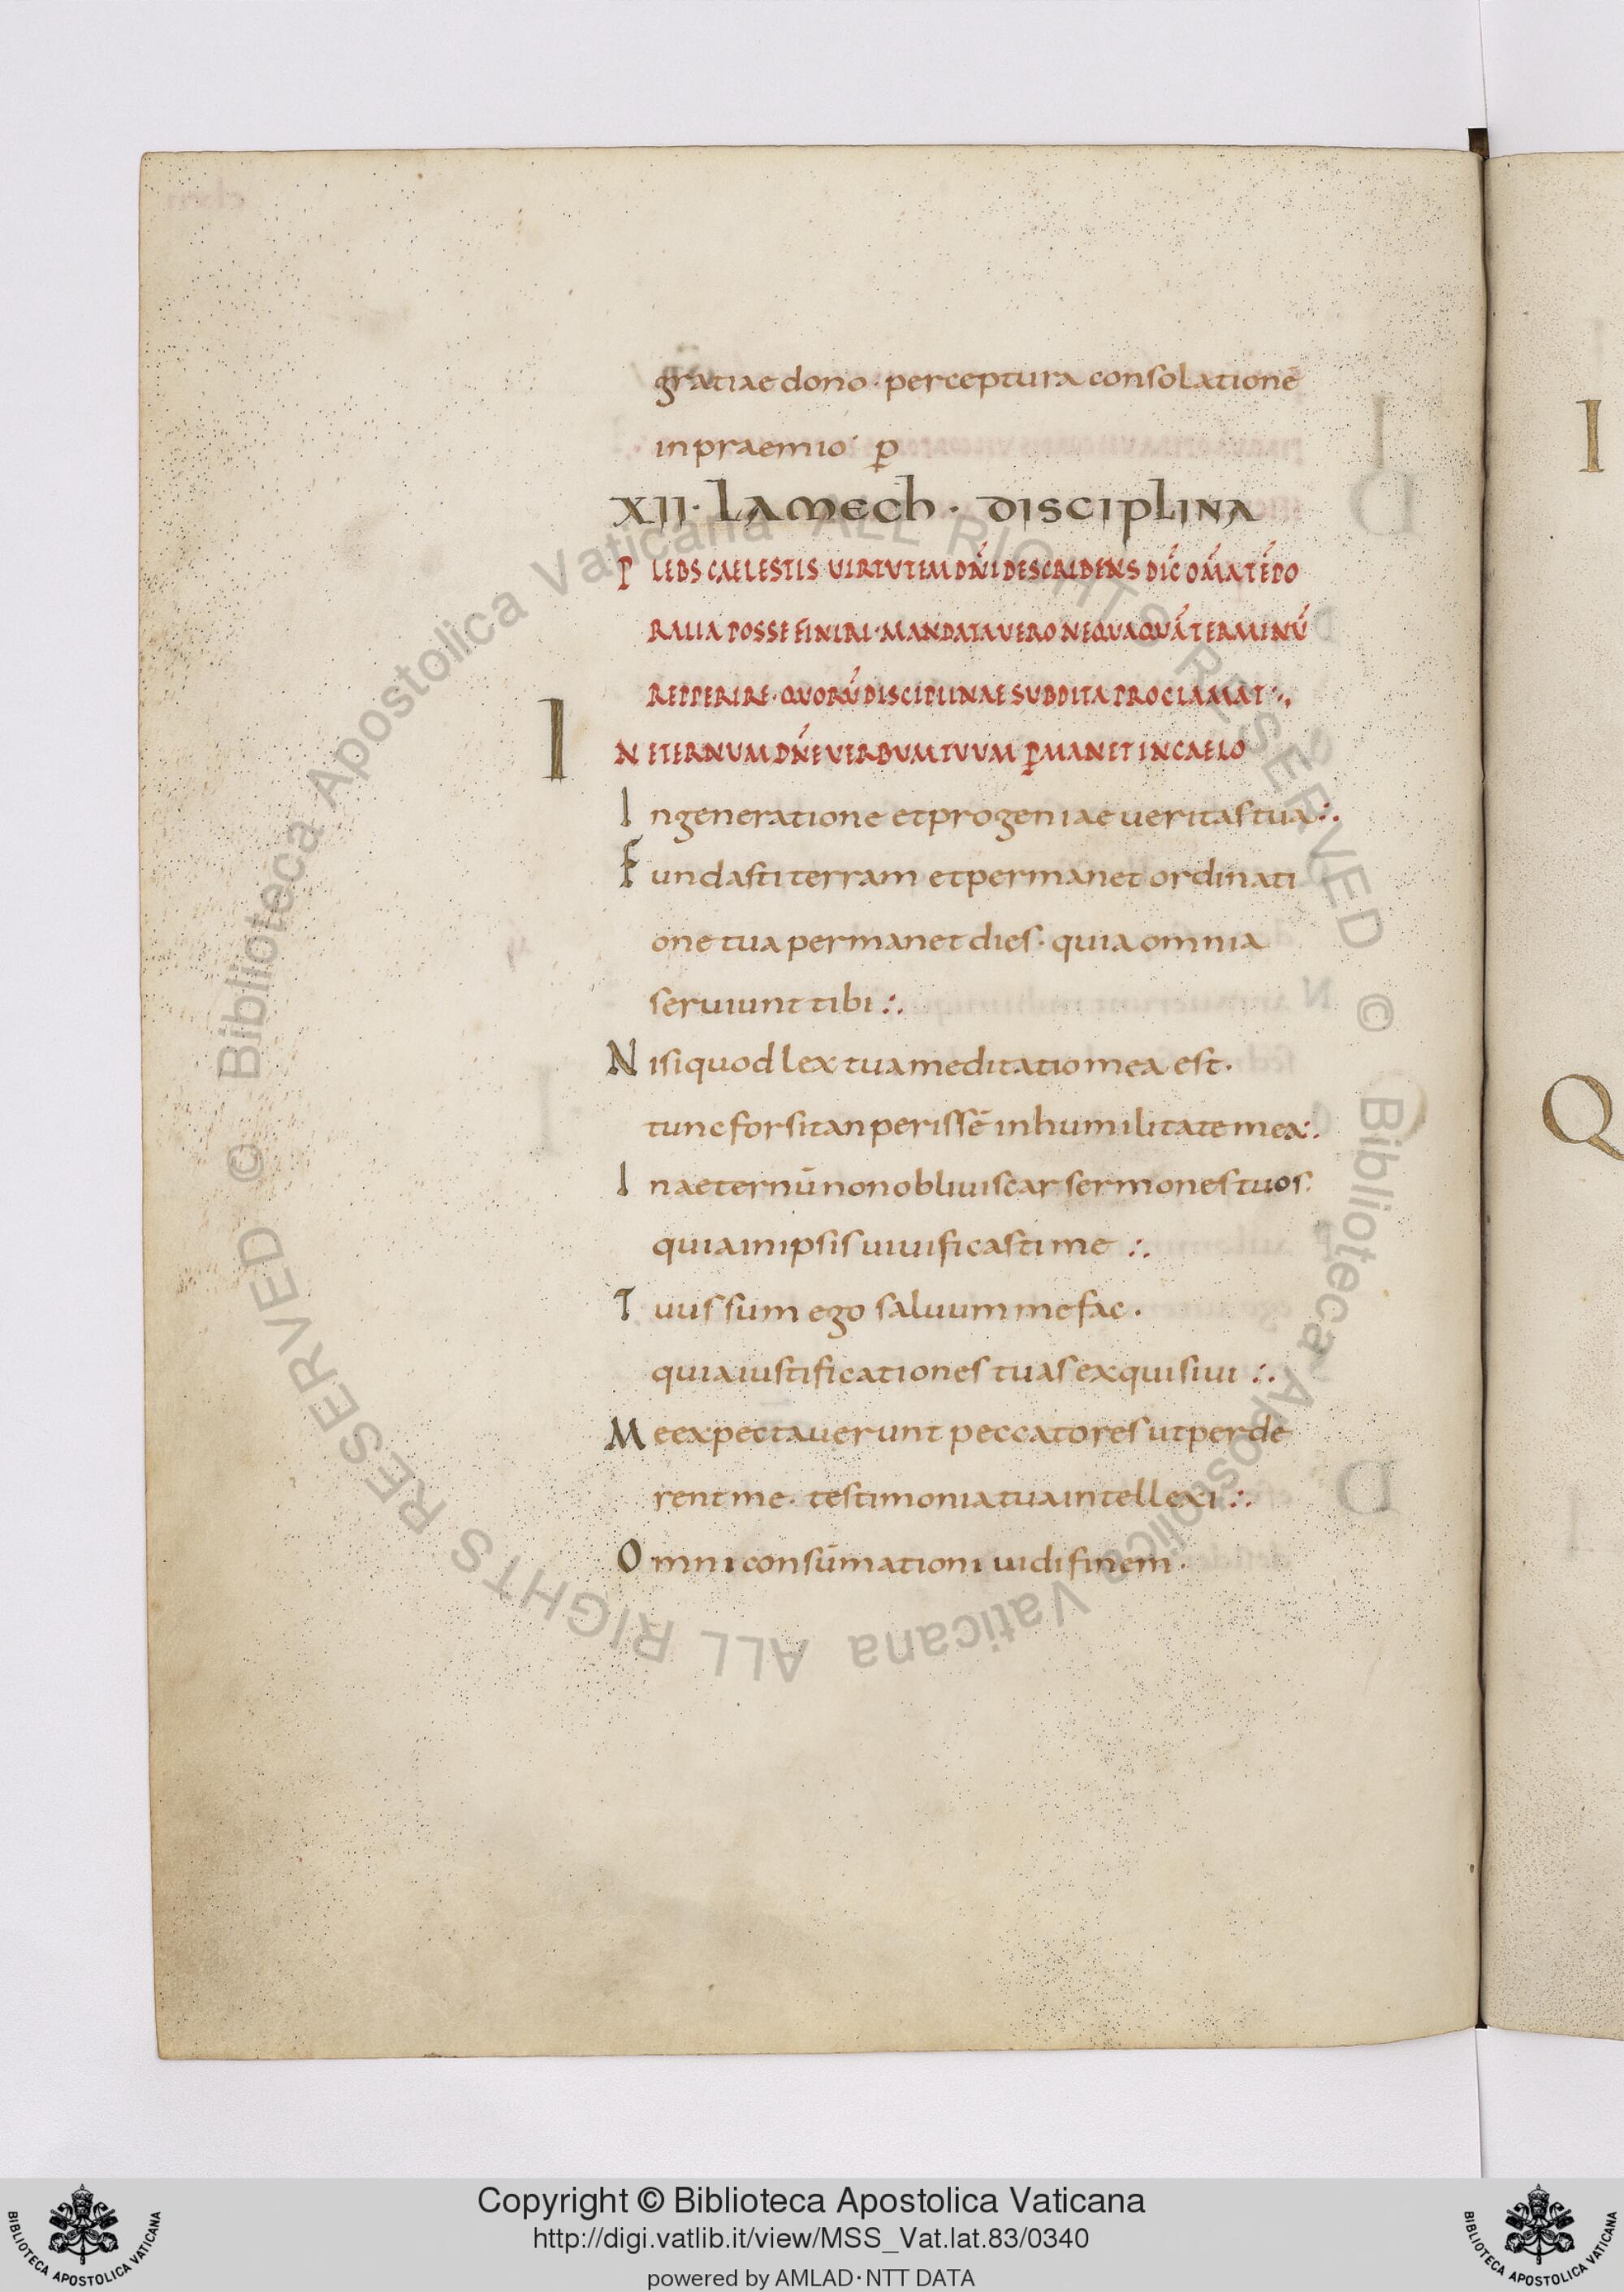 gratiae dono · perceptura consolationē
in praemio · ꝑ
XII · lamech · disciplina
PLEBS CAELESTIS VIRTVTEM DÑI DESCRIBENS DIC̄ OM̄A TĒPO
RALIA POSSE FINIRI · MANDATA VERO NEQVAQVĀ TERMINŪ
REPPERIRE · QVORŪ DISCIPLINAE SVBDITA PROCLAMAT ·:,
IN ETERNUM DÑE VERBVM TVVM ꝐMANET IN CAELO
In generatione et progeniae ueritas tua :·
Fundasti terram et permanet ordinati
one tua permanet dies · quia omnia
seruiunt tibi :·
Nisi quod lex tua meditatio mea est ·
tunc forsitan perissē in humilitate mea :·
In aeternū non obliuiscar sermones tuos ·
quia in ipsis uiuificasti me :·
Tuus sum ego saluum me fac ·
quia iustificationes tuas exquisiui :·
Me expectauerunt peccatores ut perde
rent me · testimonia tua intellexi :·
Omni consūmationi uidi finem ·
I
Q
© Biblioteca Apostolica Vaticana ALL RIGHTS RESERVED © Biblioteca Apostolica Vaticana ALL RIGHTS RESERVED
Copyright © Biblioteca Apostolica Vaticana
http://digi.vatlib.it/view/MSS_Vat.lat.83/0340
powered by AMLAD · NTT DATA
BIBLIOTECA APOSTOLICA VATICANA
BIBLIOTECA APOSTOLICA VATICANA